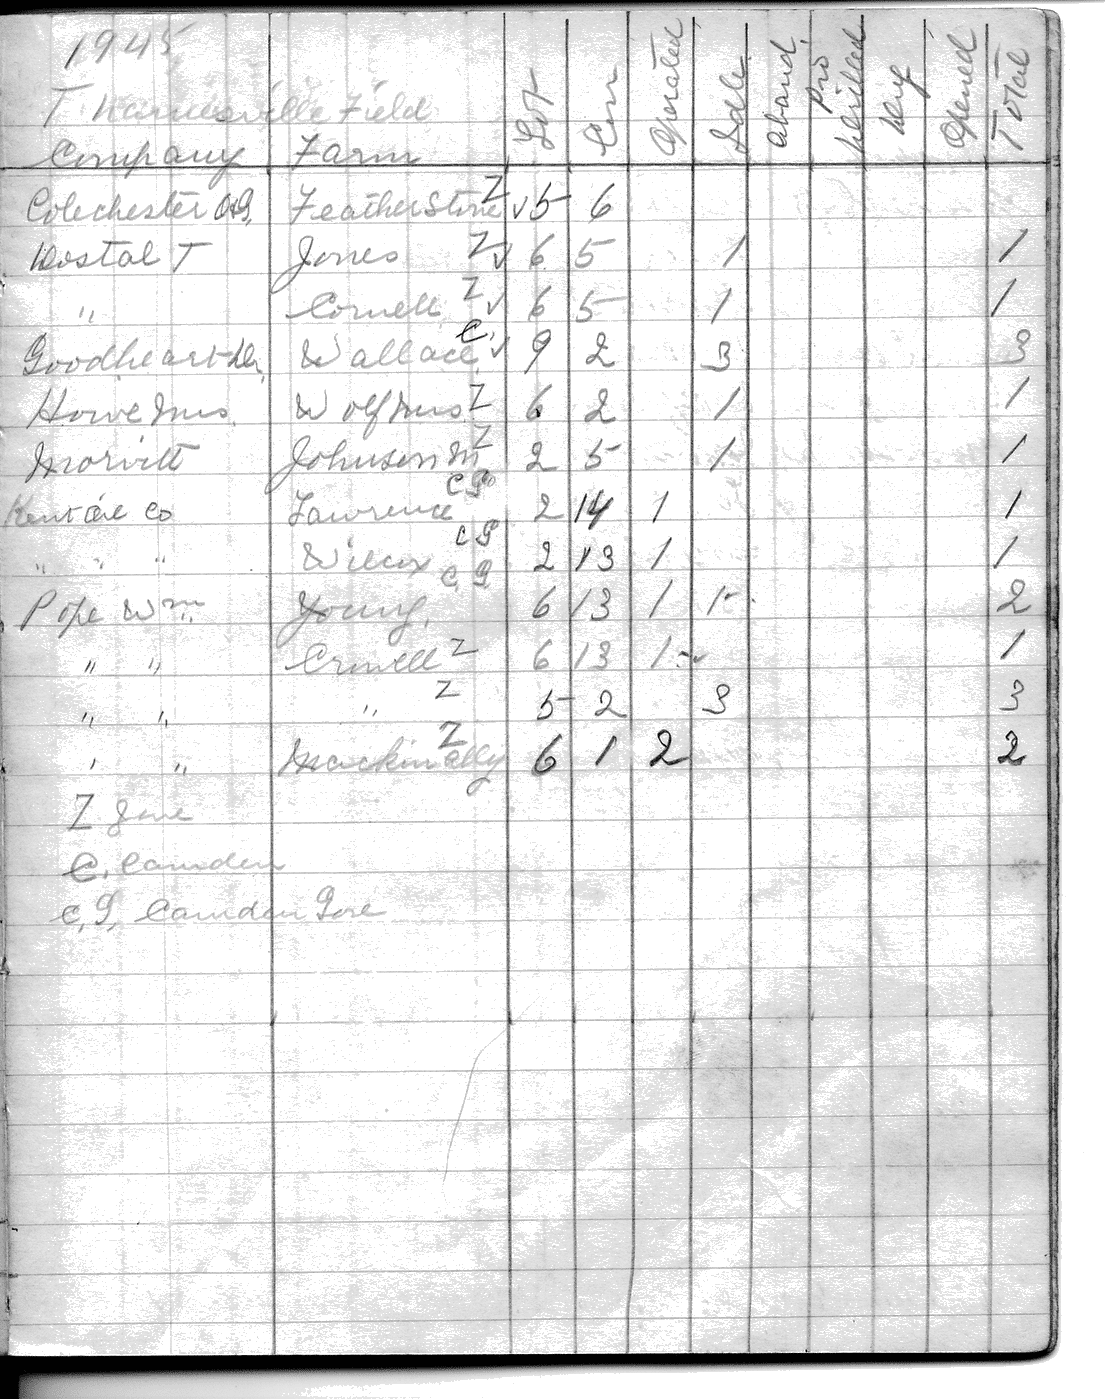 1945
T Ville Field
Company Farm Lot Con Operated Idle Aband Pro Drilled Dry Opened Total
Colechester O.G. Featherstone Z ✓ 5 6
Dostal T Jones Z ✓ 6 5 1 1
" Cornell Z ✓ 6 5 1 1
Goodheart Wallace C. ✓ 9 2 3 3
Howe Wolf Z 6 2 1 1
Johnson M Z 2 5 1 1
Co Lawrence C G 2 14 1 1
" " " Wilcox C G 2 13 1 1
Pope Wm Young C G 6 13 1 1 2
" " Z 6 13 1 1
" " " Z 5 2 3 3
" " Z 6 1 2 2
Z Gore
C. Camden
C, G, Camden Gore